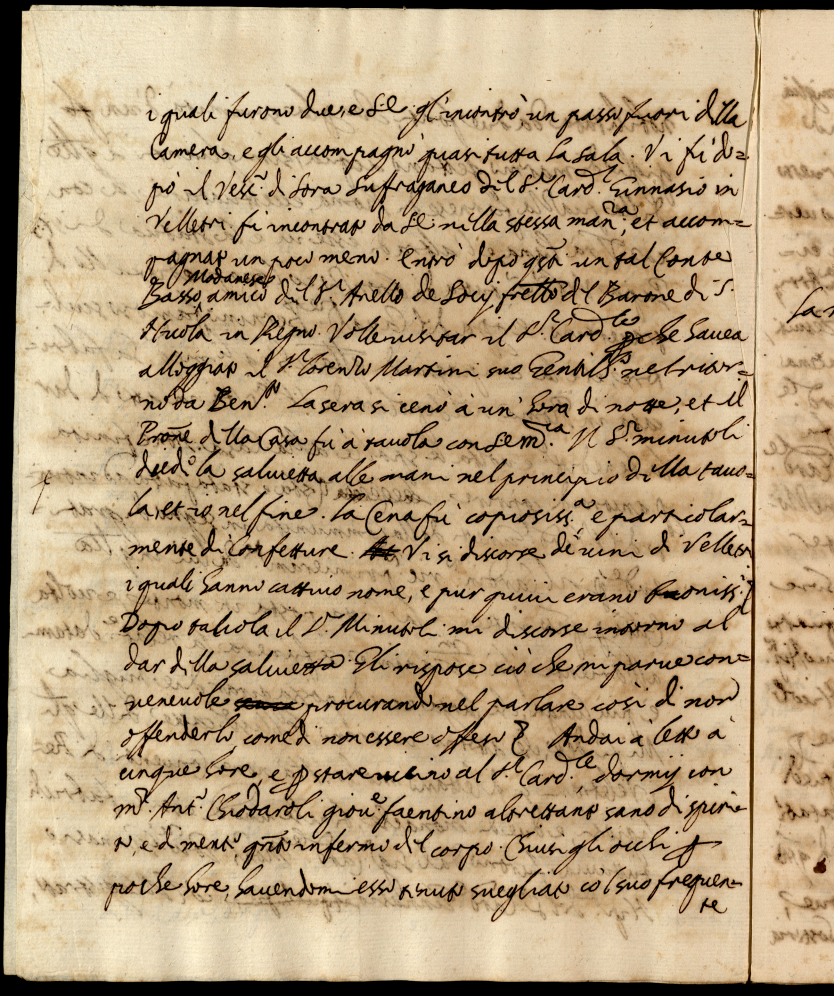 i quali furono due, e S.E. gl'incontrò un passo fuori della
Camera, e gli accompagnò quasi tutta la sala. Vi fù do=
pò il Vesc.º di Sora suffraganeo del S.r Card.le Ginnasio in
Velletri fù incontrato da S.E. nella stessa man.ra, et accom=
pagnato un poco meno. Entrò dipoi un tal Conte
Modanese
Basso, amico del S.r Aniello de Socij frello del Barone di S.
Nicola in Regno. Volle visitar il S.r Card.le pche havea
alloggiato il S.r Lorenzo Martini suo Gentil. nel ritor=
no da Ben.to La sera si cenò à un' hora di notte, et il
Prone della Casa fù à tavola con S.Em.za Il S.r Minutoli
diede la salvietta alle mani nel principio della tavo=
la, et io nel fine. La Cena fù copiosiss.a e particolar=
mente di Confetture. Vi si discorse de' vini di Velletri
i quali hanno cattivo nome, e pur quivi erano buoniss.i
Dopo tavola il S.r Minutoli mi discorse intorno al
dar della salvietta. Gli rispose ciò che mi parve con=
venevole procurando nel parlare così di non
offenderlo come di non essere offeso. Andai à letto à
cinque hore, e p stare vicino al S.r Card.le dormij con
m.r Ant.º Chiodaroli giov.e faentino altrettanto sano di spiri=
to, e di mente, qnto infermo del corpo. Chiusi gli occhi p
poche hore, havendomi esso tenuto svegliato cò l suo frequen=
te